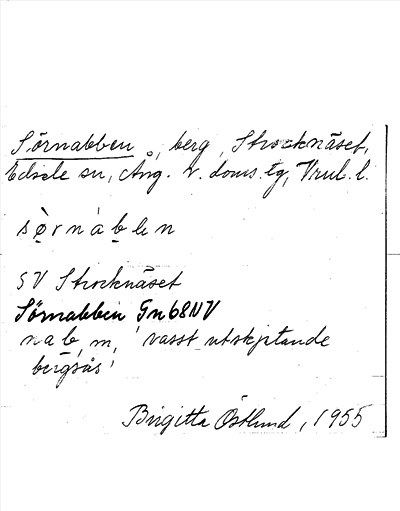 Sörnabben, berg, Strocknäset,
Edsele sn, Ång. v. doms. tg, Vnl. l.
sø̣rnàḅen
SV Strocknäset
Sörnabben Gn68NV
nab, m, 'vasst utskjutande
bergsås'
Birgitta Östlund, 1955